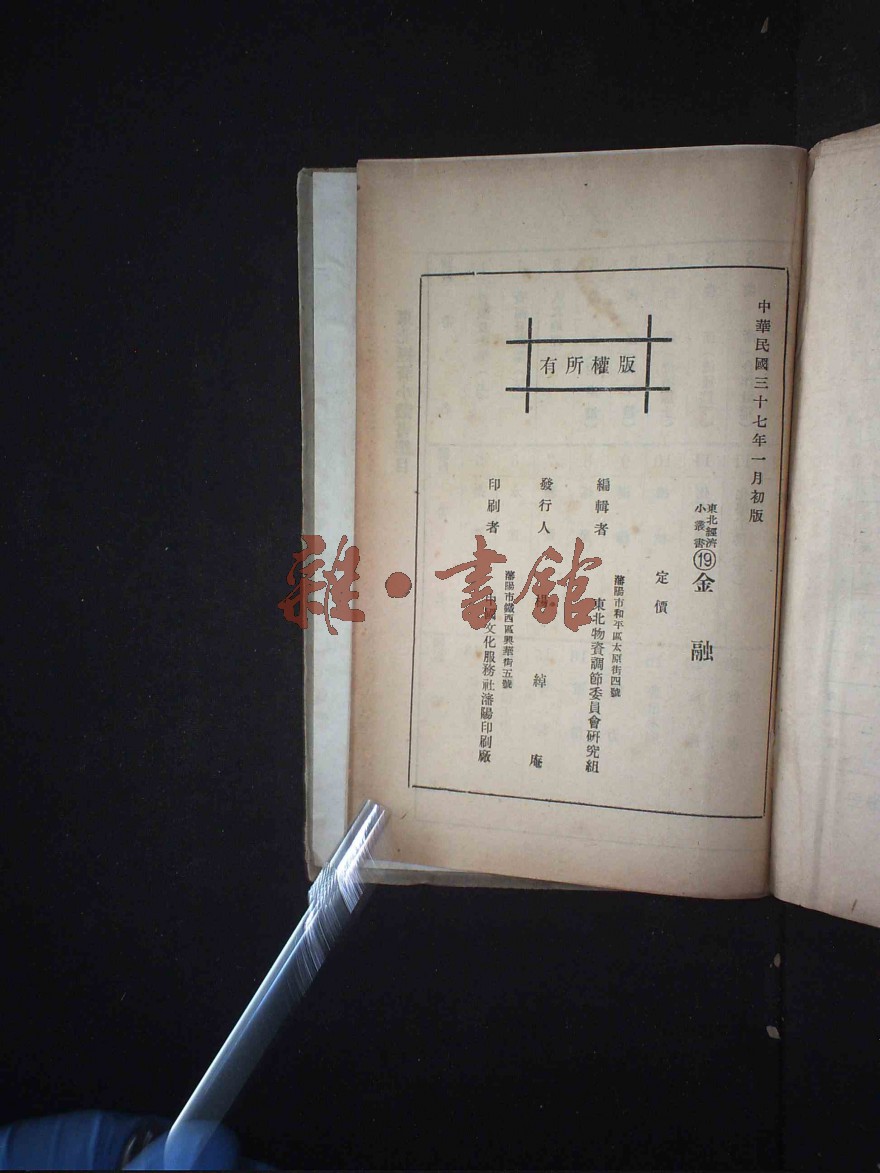 中華民國三十七年一月初版
東北經濟
小叢書
⑲金融
定價
瀋陽市和平區太原街四號
編輯者 東北物資調節委員會研究組
發行人 楊綽庵
瀋陽市鐵西區興華街五號
印刷者 中國文化服務社瀋陽印刷廠
有所權版
雜·書館